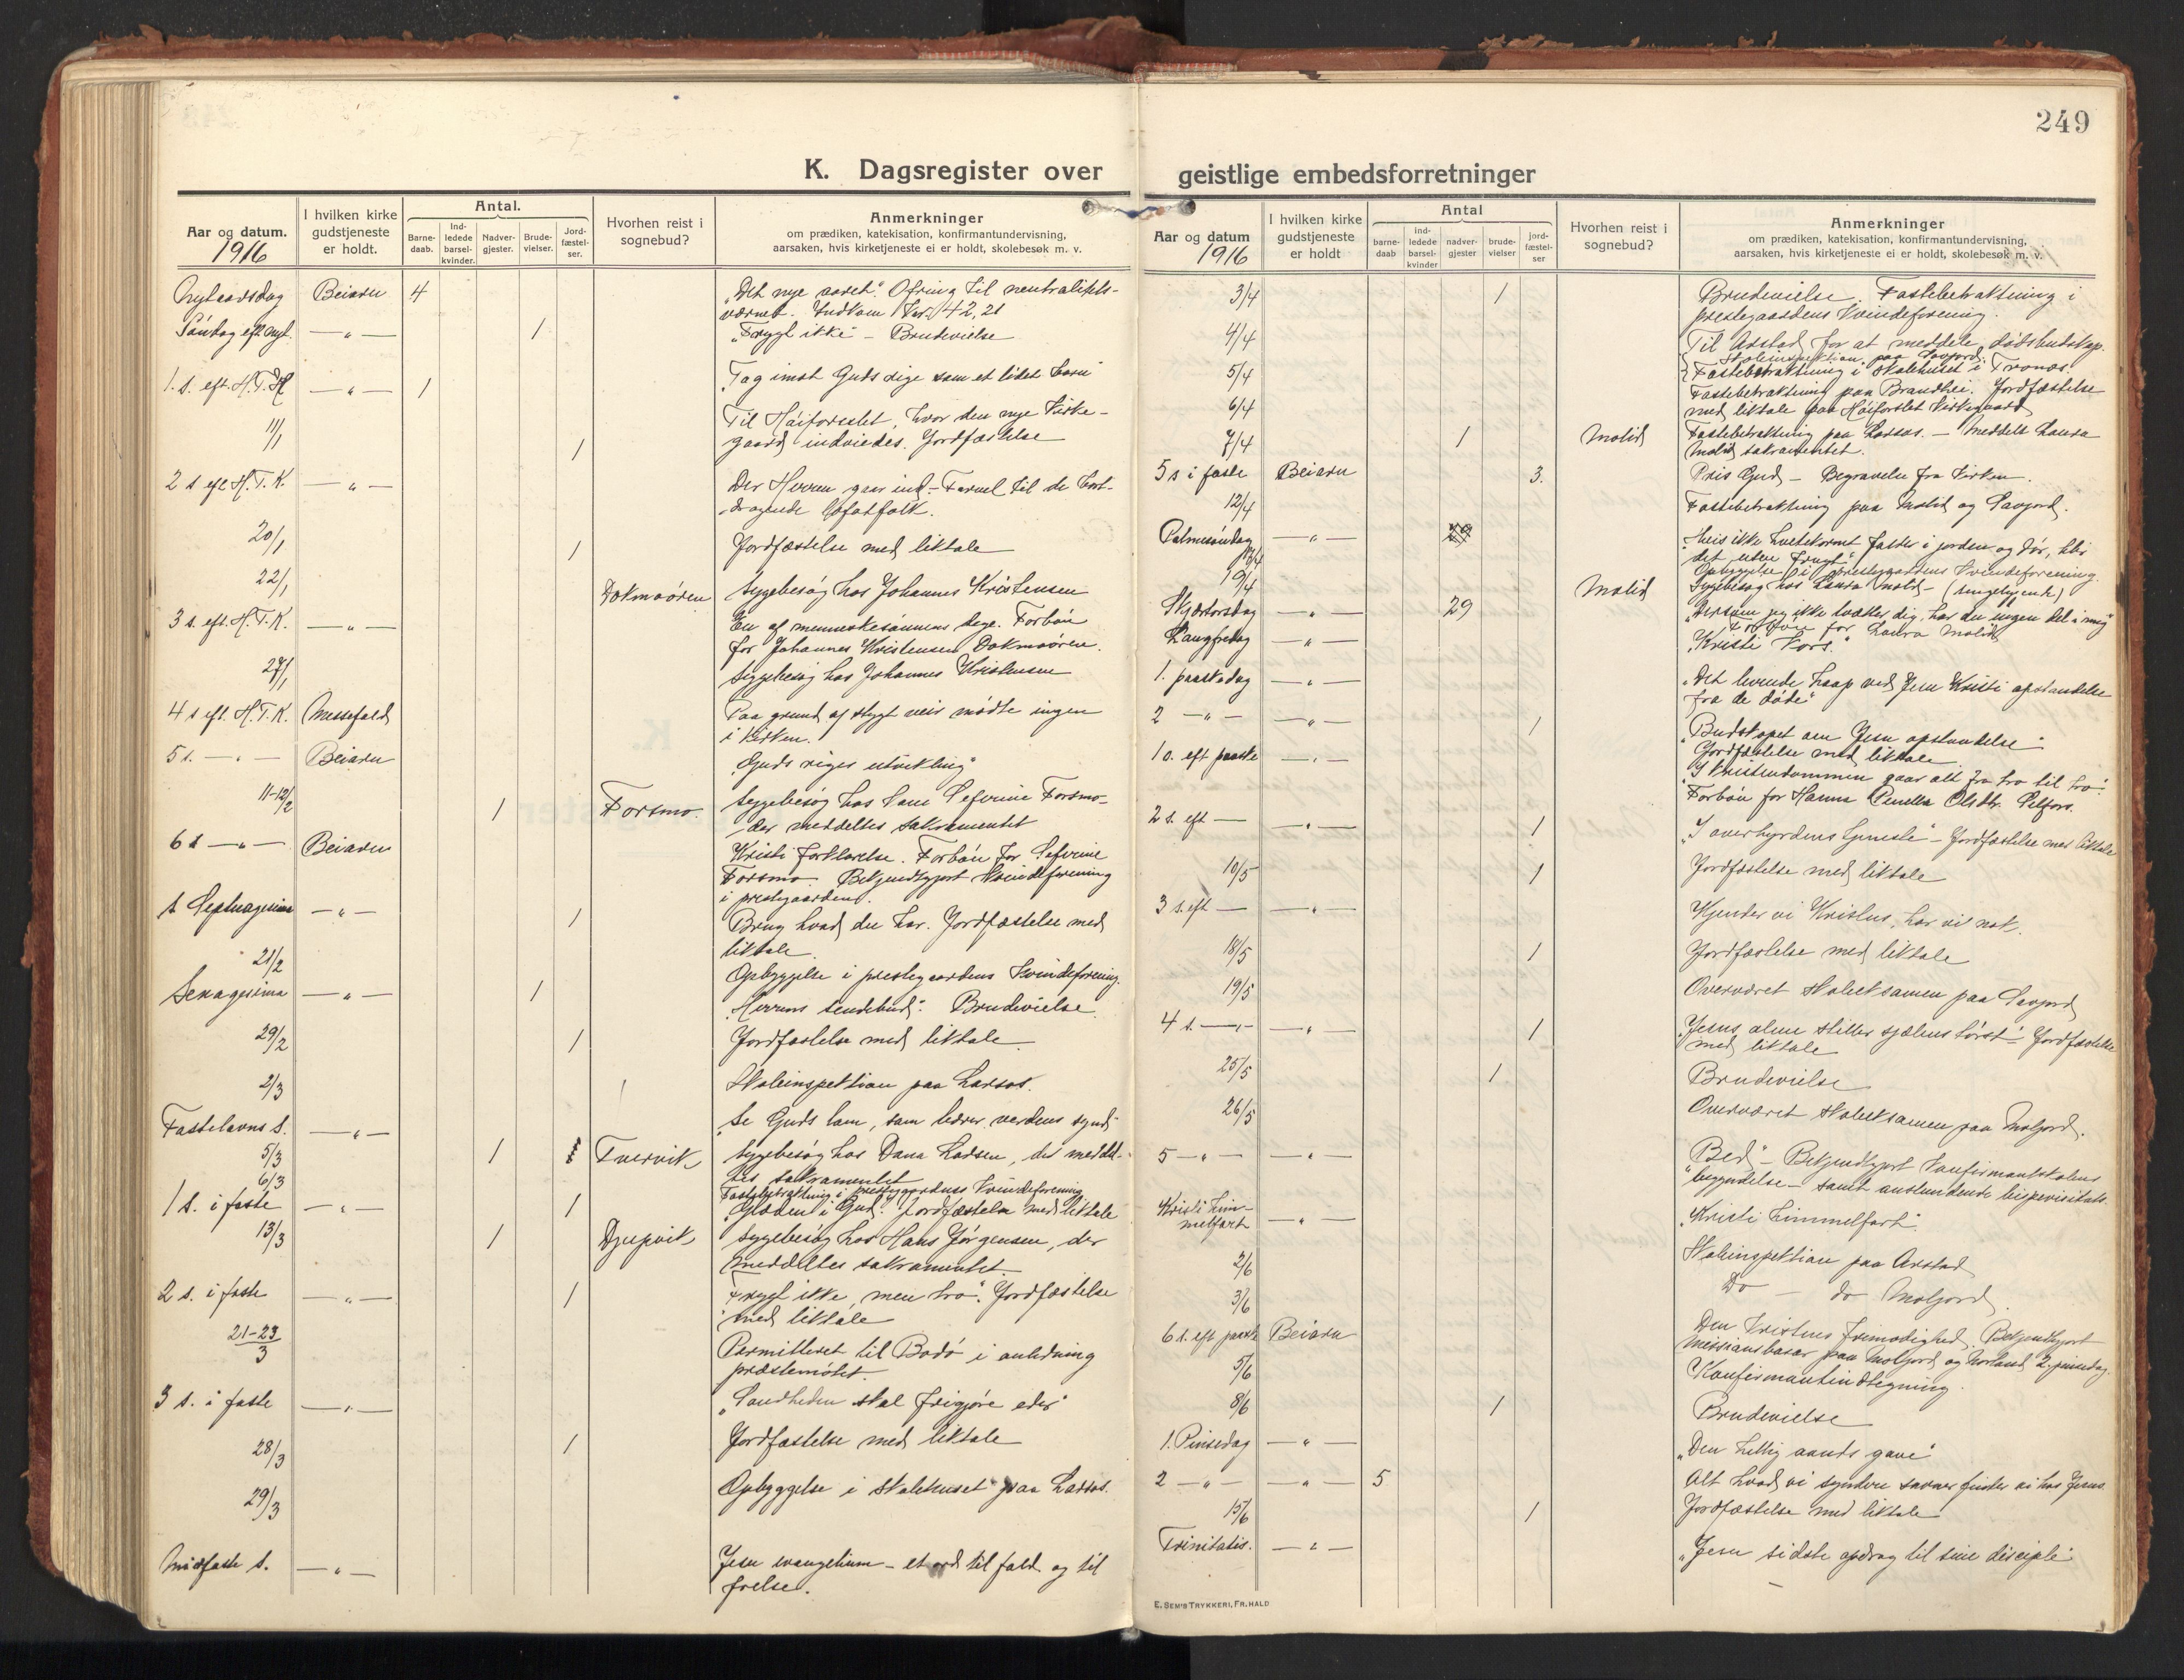 249
K. Dagsregister over geistlige embedsforretninger
Aar og datum.
1916
I hvilken kirke gudstjeneste er holdt.
Antal.
Barnedaab.
Indledede barselkvinder.
Nadvergjester.
Brudevielser.
Jordfæstelser.
Hvorhen reist i sognebud?
Anmerkninger
om prædiken, katekisation, konfirmantundervisning,
aarsaken, hvis kirketjeneste ei er holdt, skolebesøk m. v.
Nytaarsdag Beiarn 4 „Det nye aaret". Ofring til neutralitets-
værnet. Indkom Kr. 42,21
Søndag eft. nyt. — " — 1 „Frygt ikke" – Brudevielse
1. s. eft. H.T.K — " — 1 „Tag imot Guds rige som et lidet barn"
11/1 1 Til Høiforslet, hvor den nye kirke-
gaard indviedes. Jordfæstelse
2 s eft H.T.K. — " — Der Herren gaar ind – Farvel til de bort-
dragende lofotfolk.
20/1 1 Jordfæstelse med liktale
22/1 Dokmoøren Sygebesøg hos Johannes Kristensen
3 s. eft. H.T.K. — " — En af menneskesønnens dage. Forbøn
for Johannes Kristensen Dokmoøren.
27/1 Sygebesøg hos Johannes Kristensen
4 s eft. H.T.K. Misvær Paa grund af stygt veir mødte ingen
i kirken.
5 s. — " — Beiarn „Guds riges utvikling"
11-12/2 1 Forsmo. Sygebesøg hos Seferine Forsmo
der meddeltes sakramentet
6 s — " — Beiarn Kristi forklarelse. Forbøn for Seferine
Forsmo. Bekjendtgjort Kvindeforening
i prestegaarden.
s. Septuagesima — " — 1 Brug hvad du har. Jordfæstelse med
liktale.
21/2 Opbyggelse i prestegaardens Kvindeforening.
Sexagesima — " — 1 „Herrens sendebud". Brudevielse.
29/2 1 Jordfæstelse med liktale.
2/3 Skoleinspektion paa Larsos.
Fastelavns s. — " — „Se Guds lam, som bærer verdens synd"
5/3 1 Tvervik Sygebesøg hos Dana Larsen, der meddel-
tes sakramentet
6/3 Fastebetraktning i prestegaardens Kvindeforening
1 s. i faste — " — 1 „Glæden i Gud." Jordfæstelse med liktale
13/3 1 Djupvik Sygebesøg hos Hans Jørgensen, der
meddeltes sakramentet.
2 s. i faste — " — 1 „Frygt ikke, men tro". Jordfæstelse
med liktale
21-23/3 Permitteret til Bodø i anledning
præstemøtet.
3 s. i faste — " — „Sandheden skal frigjøre eder"
28/3 1 Jordfæstelse med liktale
29/3 Opbyggelse i skolehuset paa Larsos.
Midfaste s. — " — Jesu evangelium – et ord til fald og til
frelse.
Aar og datum
1916
I hvilken kirke gudstjeneste er holdt
Antal
barnedaab
indledede barselkvinder
nadvergjester
brudevielser
jordfæstelser
Hvorhen reist i sognebud?
Anmerkninger
om prædiken, katekisation, konfirmantundervisning,
aarsaken, hvis kirketjeneste ei er holdt, skolebesøk m. v.
3/4 1 Brudevielse. Fastebetraktning i
prestegaardens Kvindeforening.
4/4 Til Arstad for at meddele dødsbudskap.
Skoleinspektion paa Savjord.
5/4 Fastebetraktning i skolehuset i Tronos.
6/4 Fastebetraktning paa Brandhei. Jordfæstelse
med liktale paa Høiforslet kirkegaard
7/4 1 Molid Fastebetraktning paa Larsos. – meddelt Laura
Molid sakramentet.
5 s i faste Beiarn 3. Pris Gud – Begravelse fra kirken.
12/4 Fastebetraktning paa Molid og Savjord.
Palmesøndag — " — 29 „Hvis ikke hvetekornet falder i jorden og dør, blir
det uten frugt"
Opbyggelse i prestegaardens Kvindeforening.
19/4 Molid Sygebesøg hos Laura Molid – (sengeliggende)
Skjærtorsdag — " — 29 „Dersom jeg ikke tvætter dig, har du ingen del i mig"
Forbøn for Laura Molid
Langfredag — " — „Kristi Kors."
1. paaskedag — " — „Det levende haap ved Jesu Kristi opstandelse
fra de døde"
2 — " — — " — 1 „Budskapet om Jesu opstandelse"
Jordfæstelse med liktale.
1 s. eft paaske — " — „I kristendommen gaar alt fra tro til tro".
Forbøn for Hanna Pernella Olsdtr. Selfors.
2 s. eft — — " — 1 „I overhyrdens tjeneste" – Jordfæstelse med liktale
10/5 1 Jordfæstelse med liktale
3 s. eft — — " — Kjender vi Kristus, har vi nok.
18/5 1 Jordfæstelse med liktale
19/5 Overværet skoleeksamen paa Savjord
4 s. — " — — " — 1 „Jesus alene stiller sjælens tørst" Jordfæstelse
med liktale
25/5 1 Brudevielse
26/5 Overværet skoleeksamen paa Moljord.
5 — " — — " — „Bed". Bekjendtgjort konfirmantskolens
begyndelse – samt anstundende bispevisitats.
Kristi him-
melfart — " — „Kristi himmelfart".
2/6 Skoleinspektion paa Arstad
3/6 Do — do Moljord.
6 s. eft paaske Beiarn Den kristnes frimodighed. Bekjendtgjort
missionsbasar paa Moljord og Morland 2. pinsedag.
5/6 Konfirmantindtegning.
8/6 1 Brudevielse
1. Pinsedag — " — „Den hellig aands gave"
2 — " — — " — 5 Alt hvad vi syndere savner finder vi hos Jesus.
15/6 1 Jordfæstelse med liktale
Trinitatis. — " — „Jesu sidste opdrag til sine disciple"
E. SEM'S TRYKKERI, FR.HALD